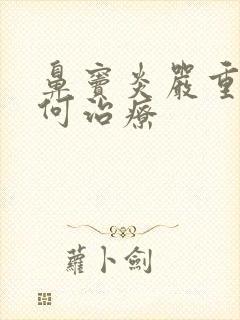 鼻竇炎嚴重
何治療
蘿卜劍